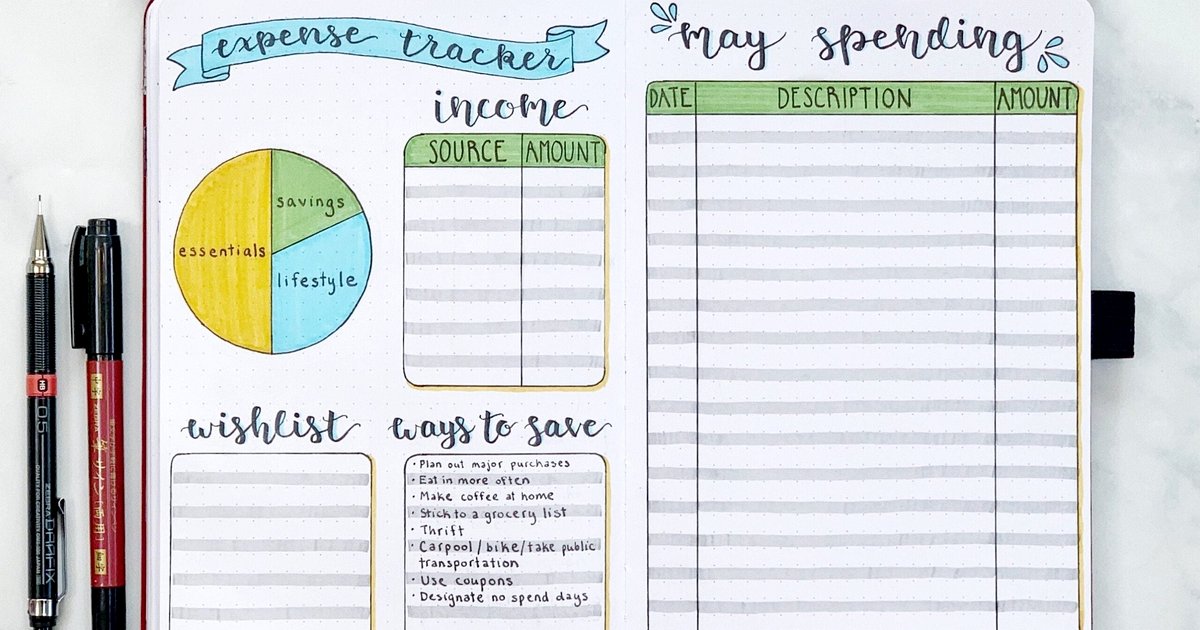 expense tracker
income
SOURCE AMOUNT
savings
essentials
lifestyle
wishlist
ways to save
· Plan out major purchases
· Eat in more often
· Make coffee at home
· Stick to a grocery list
· Thrift
· Carpool / bike / take public
transportation
· Use coupons
· Designate no spend days
may spending
DATE DESCRIPTION AMOUNT
HB
0.5
ZEBRA DRAFIX